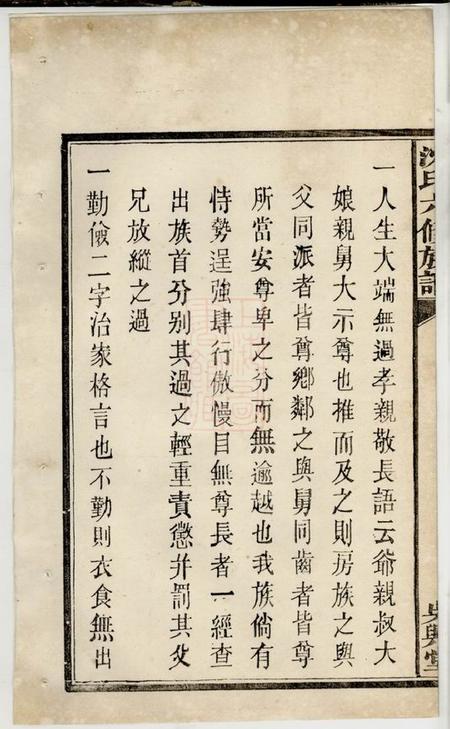 沈氏六修族譜
吳興堂
一人生大端無過孝親敬長語云爺親叔大
娘親舅大示尊也推而及之則房族之與
父同派者皆尊鄉鄰之與舅同齒者皆尊
所當安尊卑之分而無逾越也我族倘有
恃勢逞強肆行傲慢目無尊長者一經查
出族首分別其過之輕重責懲并罰其父
兄放縱之過
一勤儉二字治家格言也不勤則衣食無出